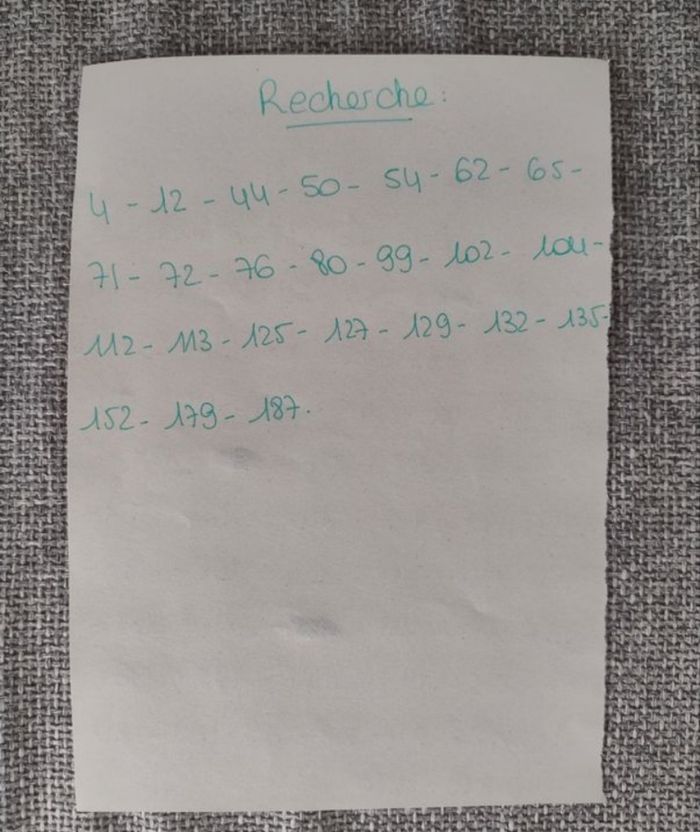 Recherche:
4 - 12 - 44 - 50 - 54 - 62 - 65 -
71 - 72 - 76 - 80 - 99 - 102 - 104 -
112 - 113 - 125 - 127 - 129 - 132 - 135 -
152 - 179 - 187.